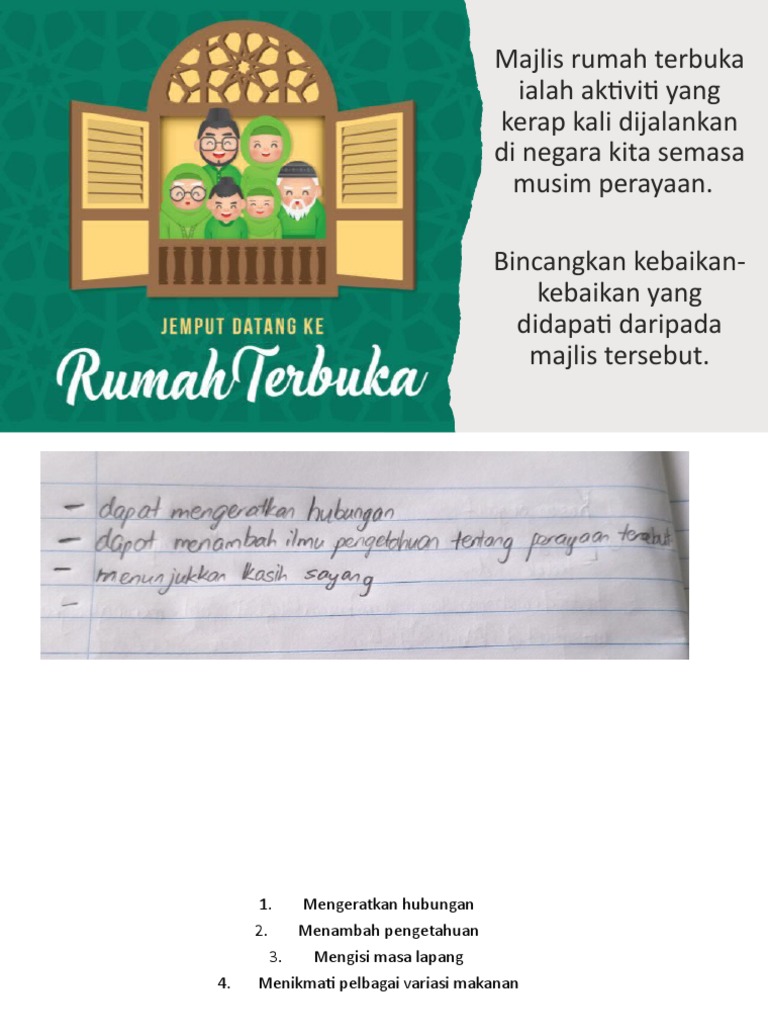 Majlis rumah terbuka
ialah aktiviti yang
kerap kali dijalankan
di negara kita semasa
musim perayaan.
Bincangkan kebaikan-
kebaikan yang
didapati daripada
majlis tersebut.
JEMPUT DATANG KE
Rumah Terbuka
- dapat mengeratkan hubungan
- dapat menambah ilmu pengetahuan tentang perayaan tersebut
- menunjukkan kasih sayang
-
1. Mengeratkan hubungan
2. Menambah pengetahuan
3. Mengisi masa lapang
4. Menikmati pelbagai variasi makanan